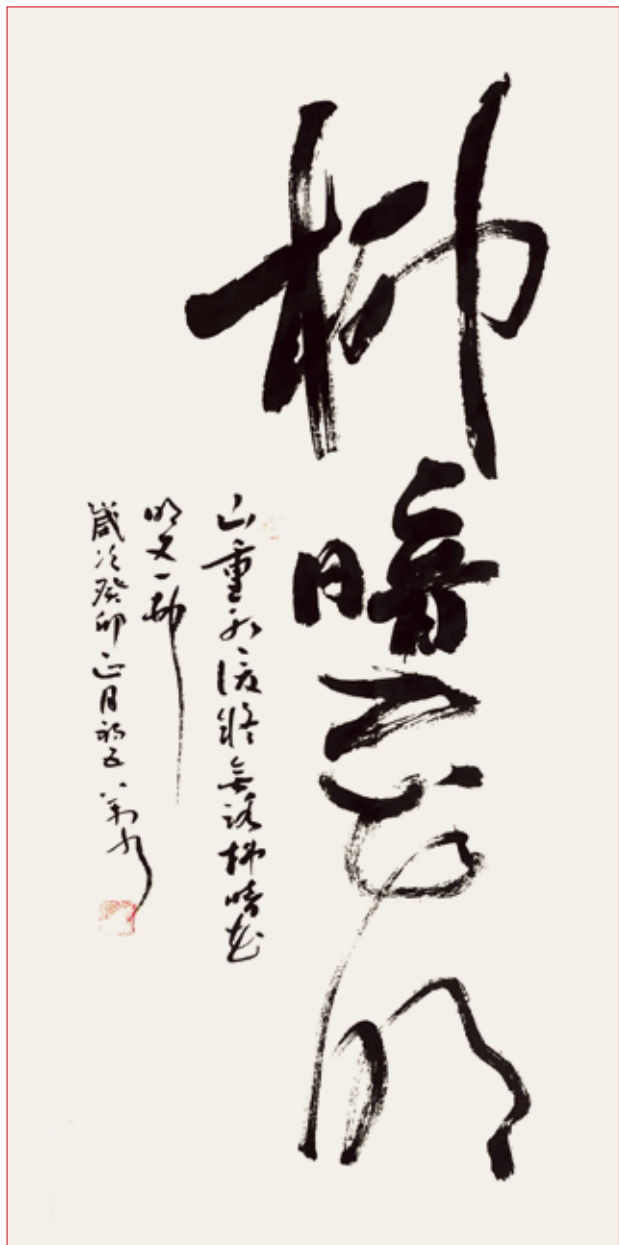 柳暗花明
山重水複疑無路柳暗花
明又一邨
歲次癸卯正月初五